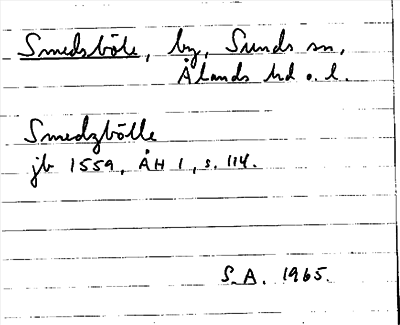 Smedsböle, by, Sunds sn,
Ålands hd o. l.
Smedzbölle
jb 1559, ÅH 1, s. 114.
S.A. 1965.